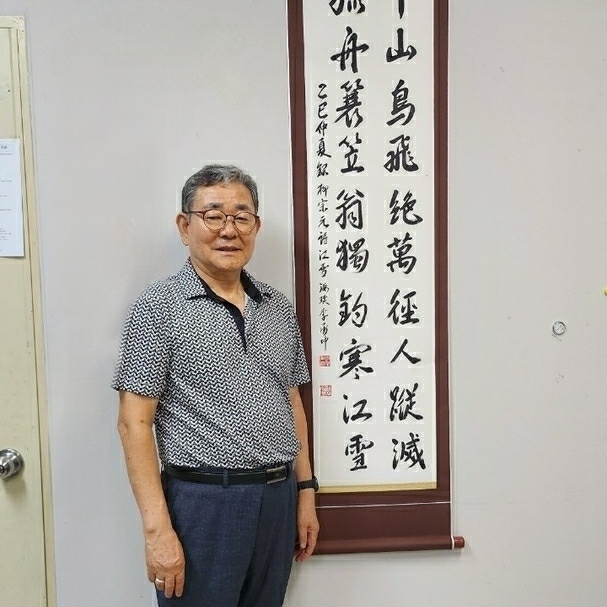 千山鳥飛絶萬徑人蹤滅
孤舟簑笠翁獨釣寒江雪
乙巳仲夏錄柳宗元詩江雪